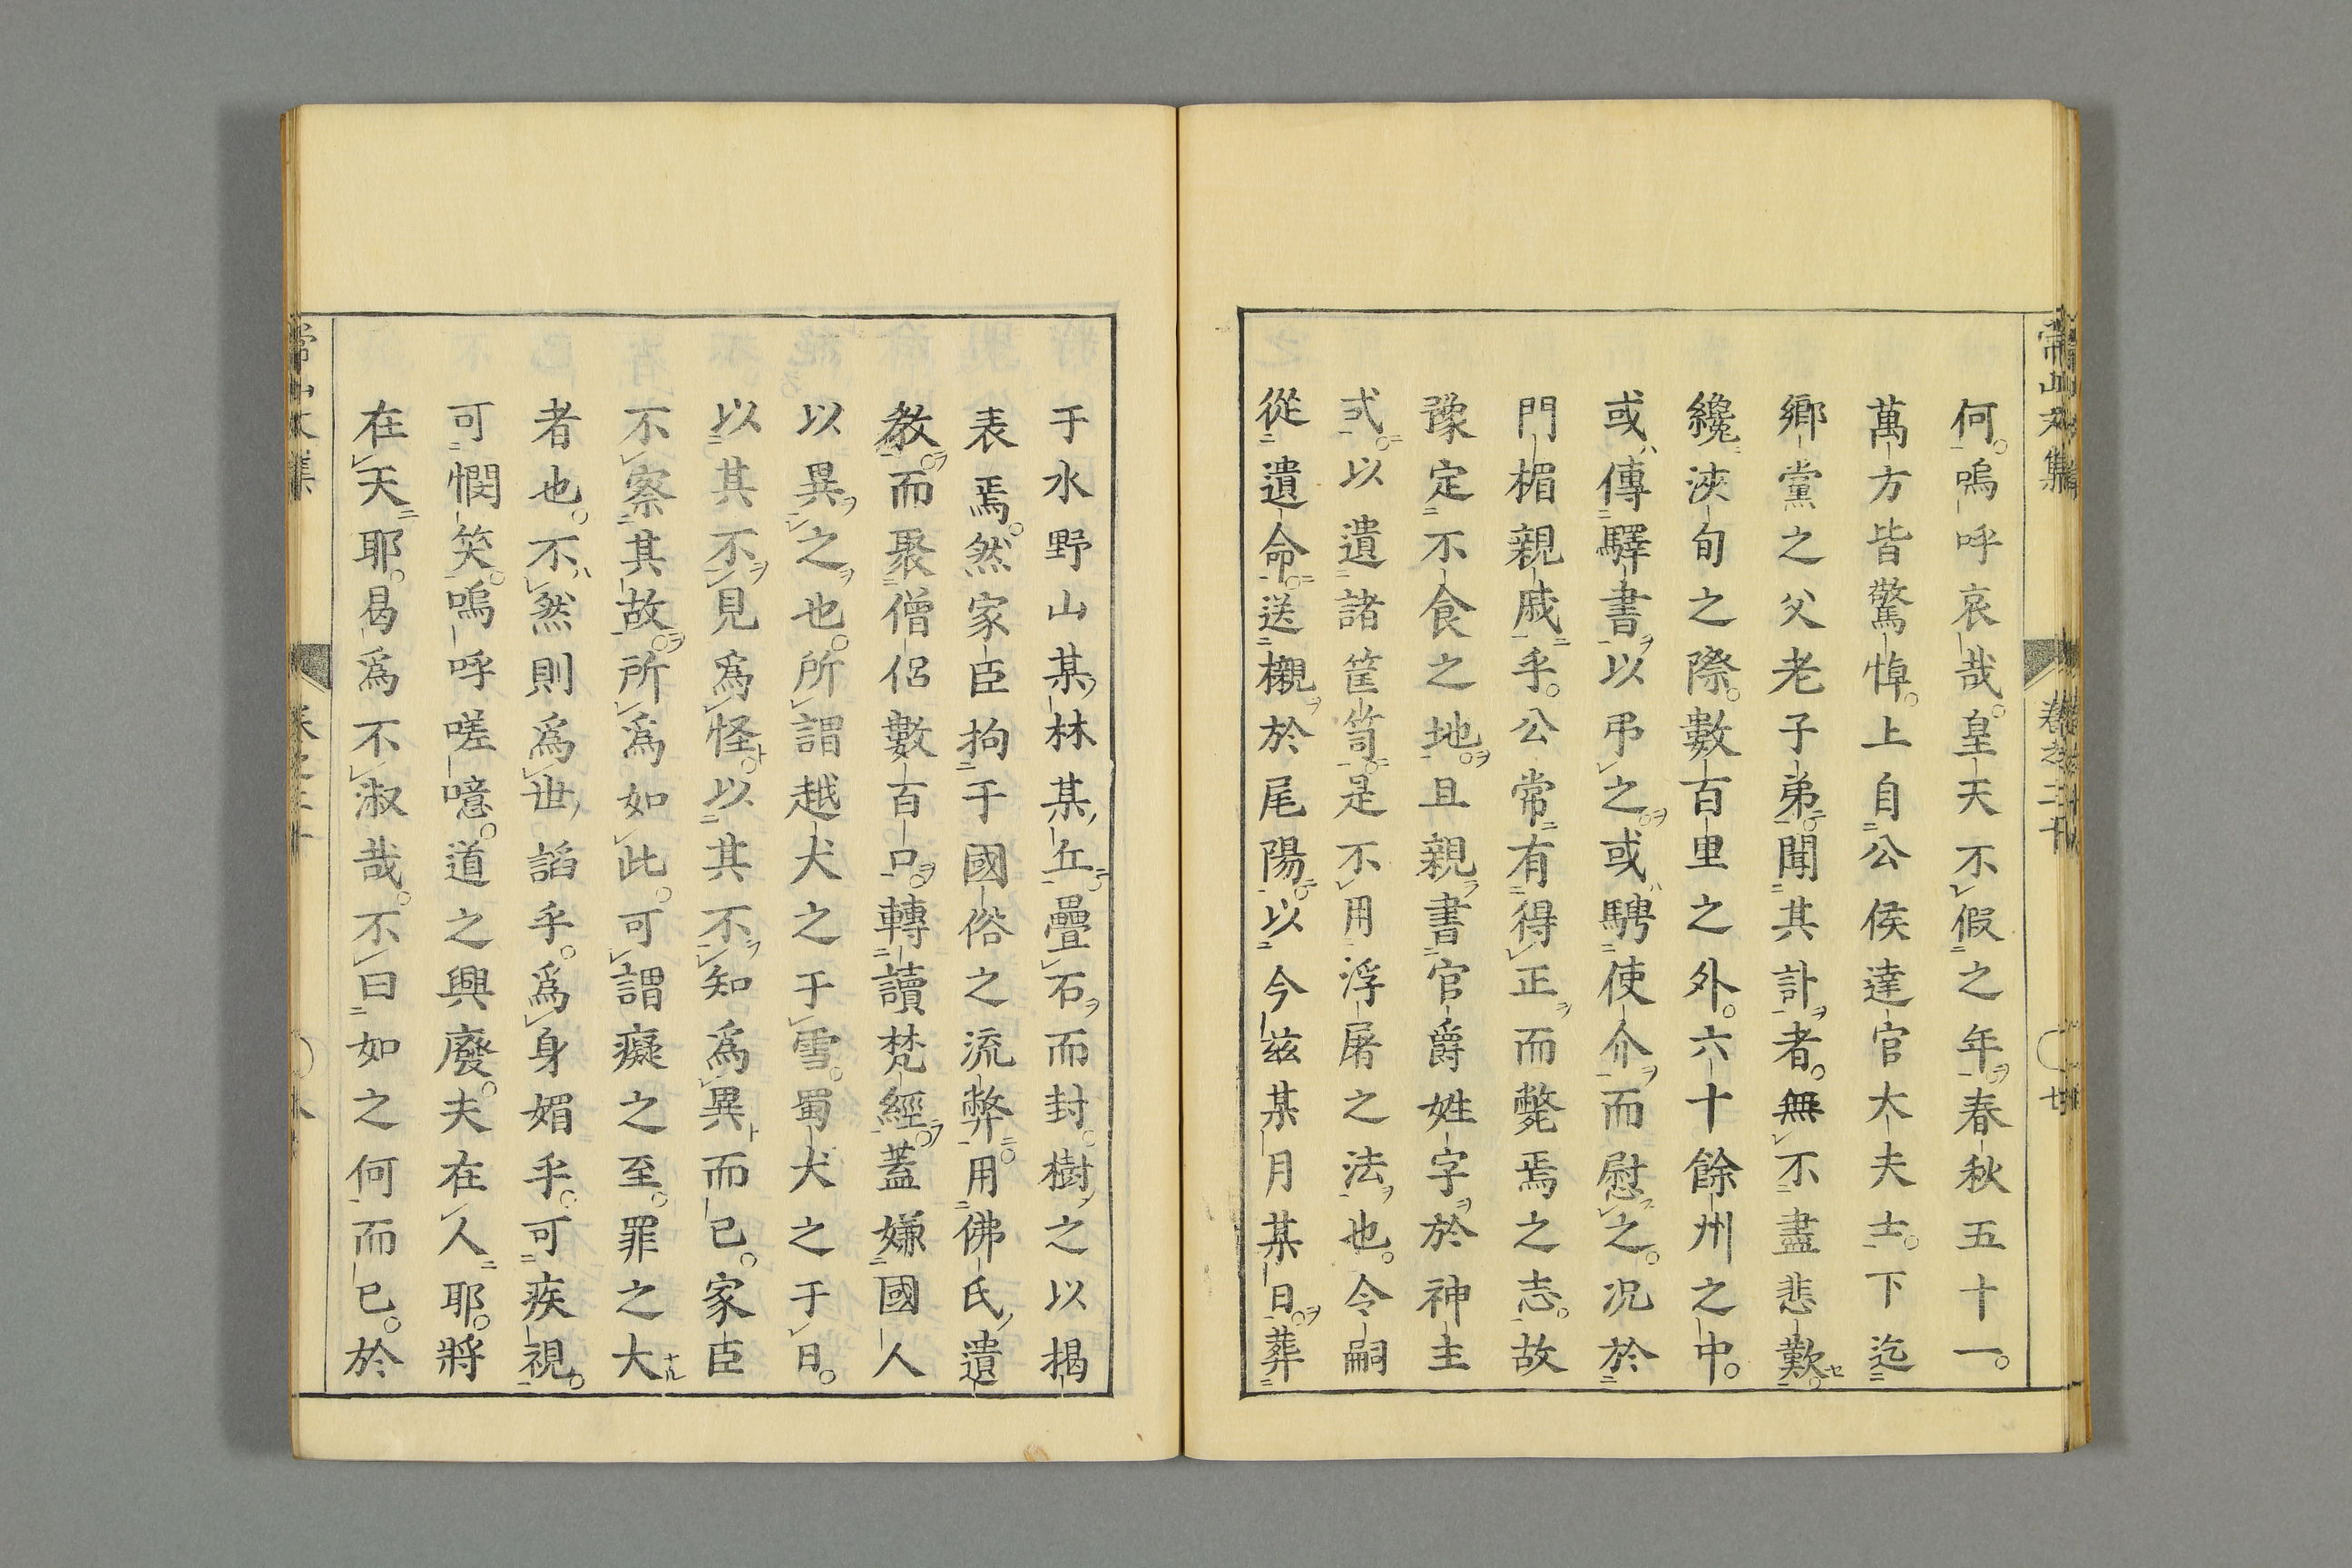 常山文集 卷之二十 廿
何嗚呼哀哉皇天不假之年春秋五十一
萬方皆驚悼上自公侯達官大夫士下迄
鄉黨之父老子弟聞其訃者無不盡悲歎
纔浹旬之際數百里之外六十餘州之中
或傳驛書以弔之或騁使介而慰之况於
門楣親戚乎公常有得正而斃焉之志故
豫定不食之地且親書官爵姓字於神主
式以遺諸筐笥是不用浮屠之法也令嗣
從遺命送櫬於尾陽以今茲某月某日葬
于水野山某林某丘疊石而封樹之以揭
表焉然家臣拘于國俗之流弊用佛氏遺
教而聚僧侶數百口轉讀梵經蓋嫌國人
以異之也所謂越犬之于雪蜀犬之于日
以其不見爲怪以其不知爲異而已家臣
不察其故所爲如此可謂癡之至罪之大
者也不然則爲世諂乎爲身媚乎可疾視
可憫笑嗚呼嗟噫道之興廢夫在人耶將
在天耶曷爲不淑哉不曰如之何而已於
常山文集